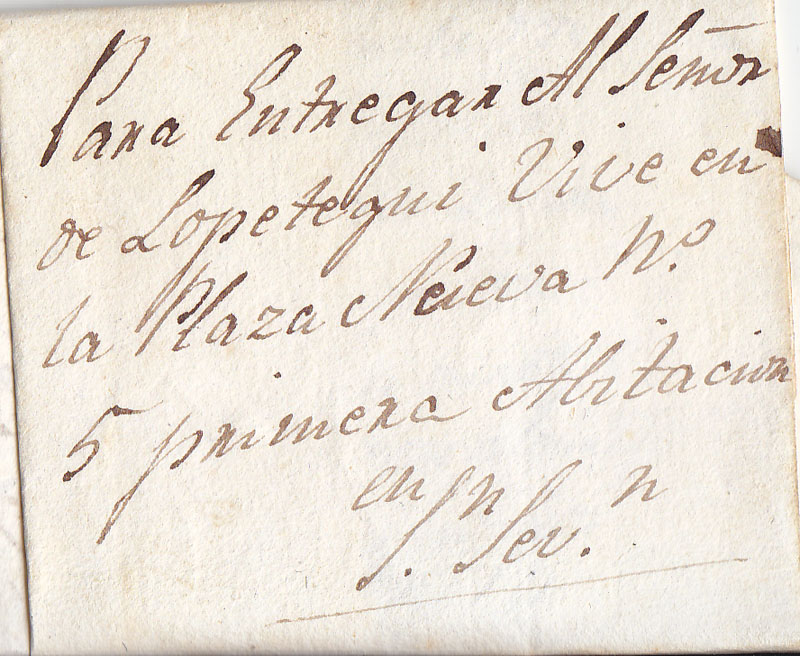 Para Entregar Al Señor
de Lopetegui Vive en
la Plaza Nueva Nº
5 primera Abitacion
en Sn
S. Sev.n